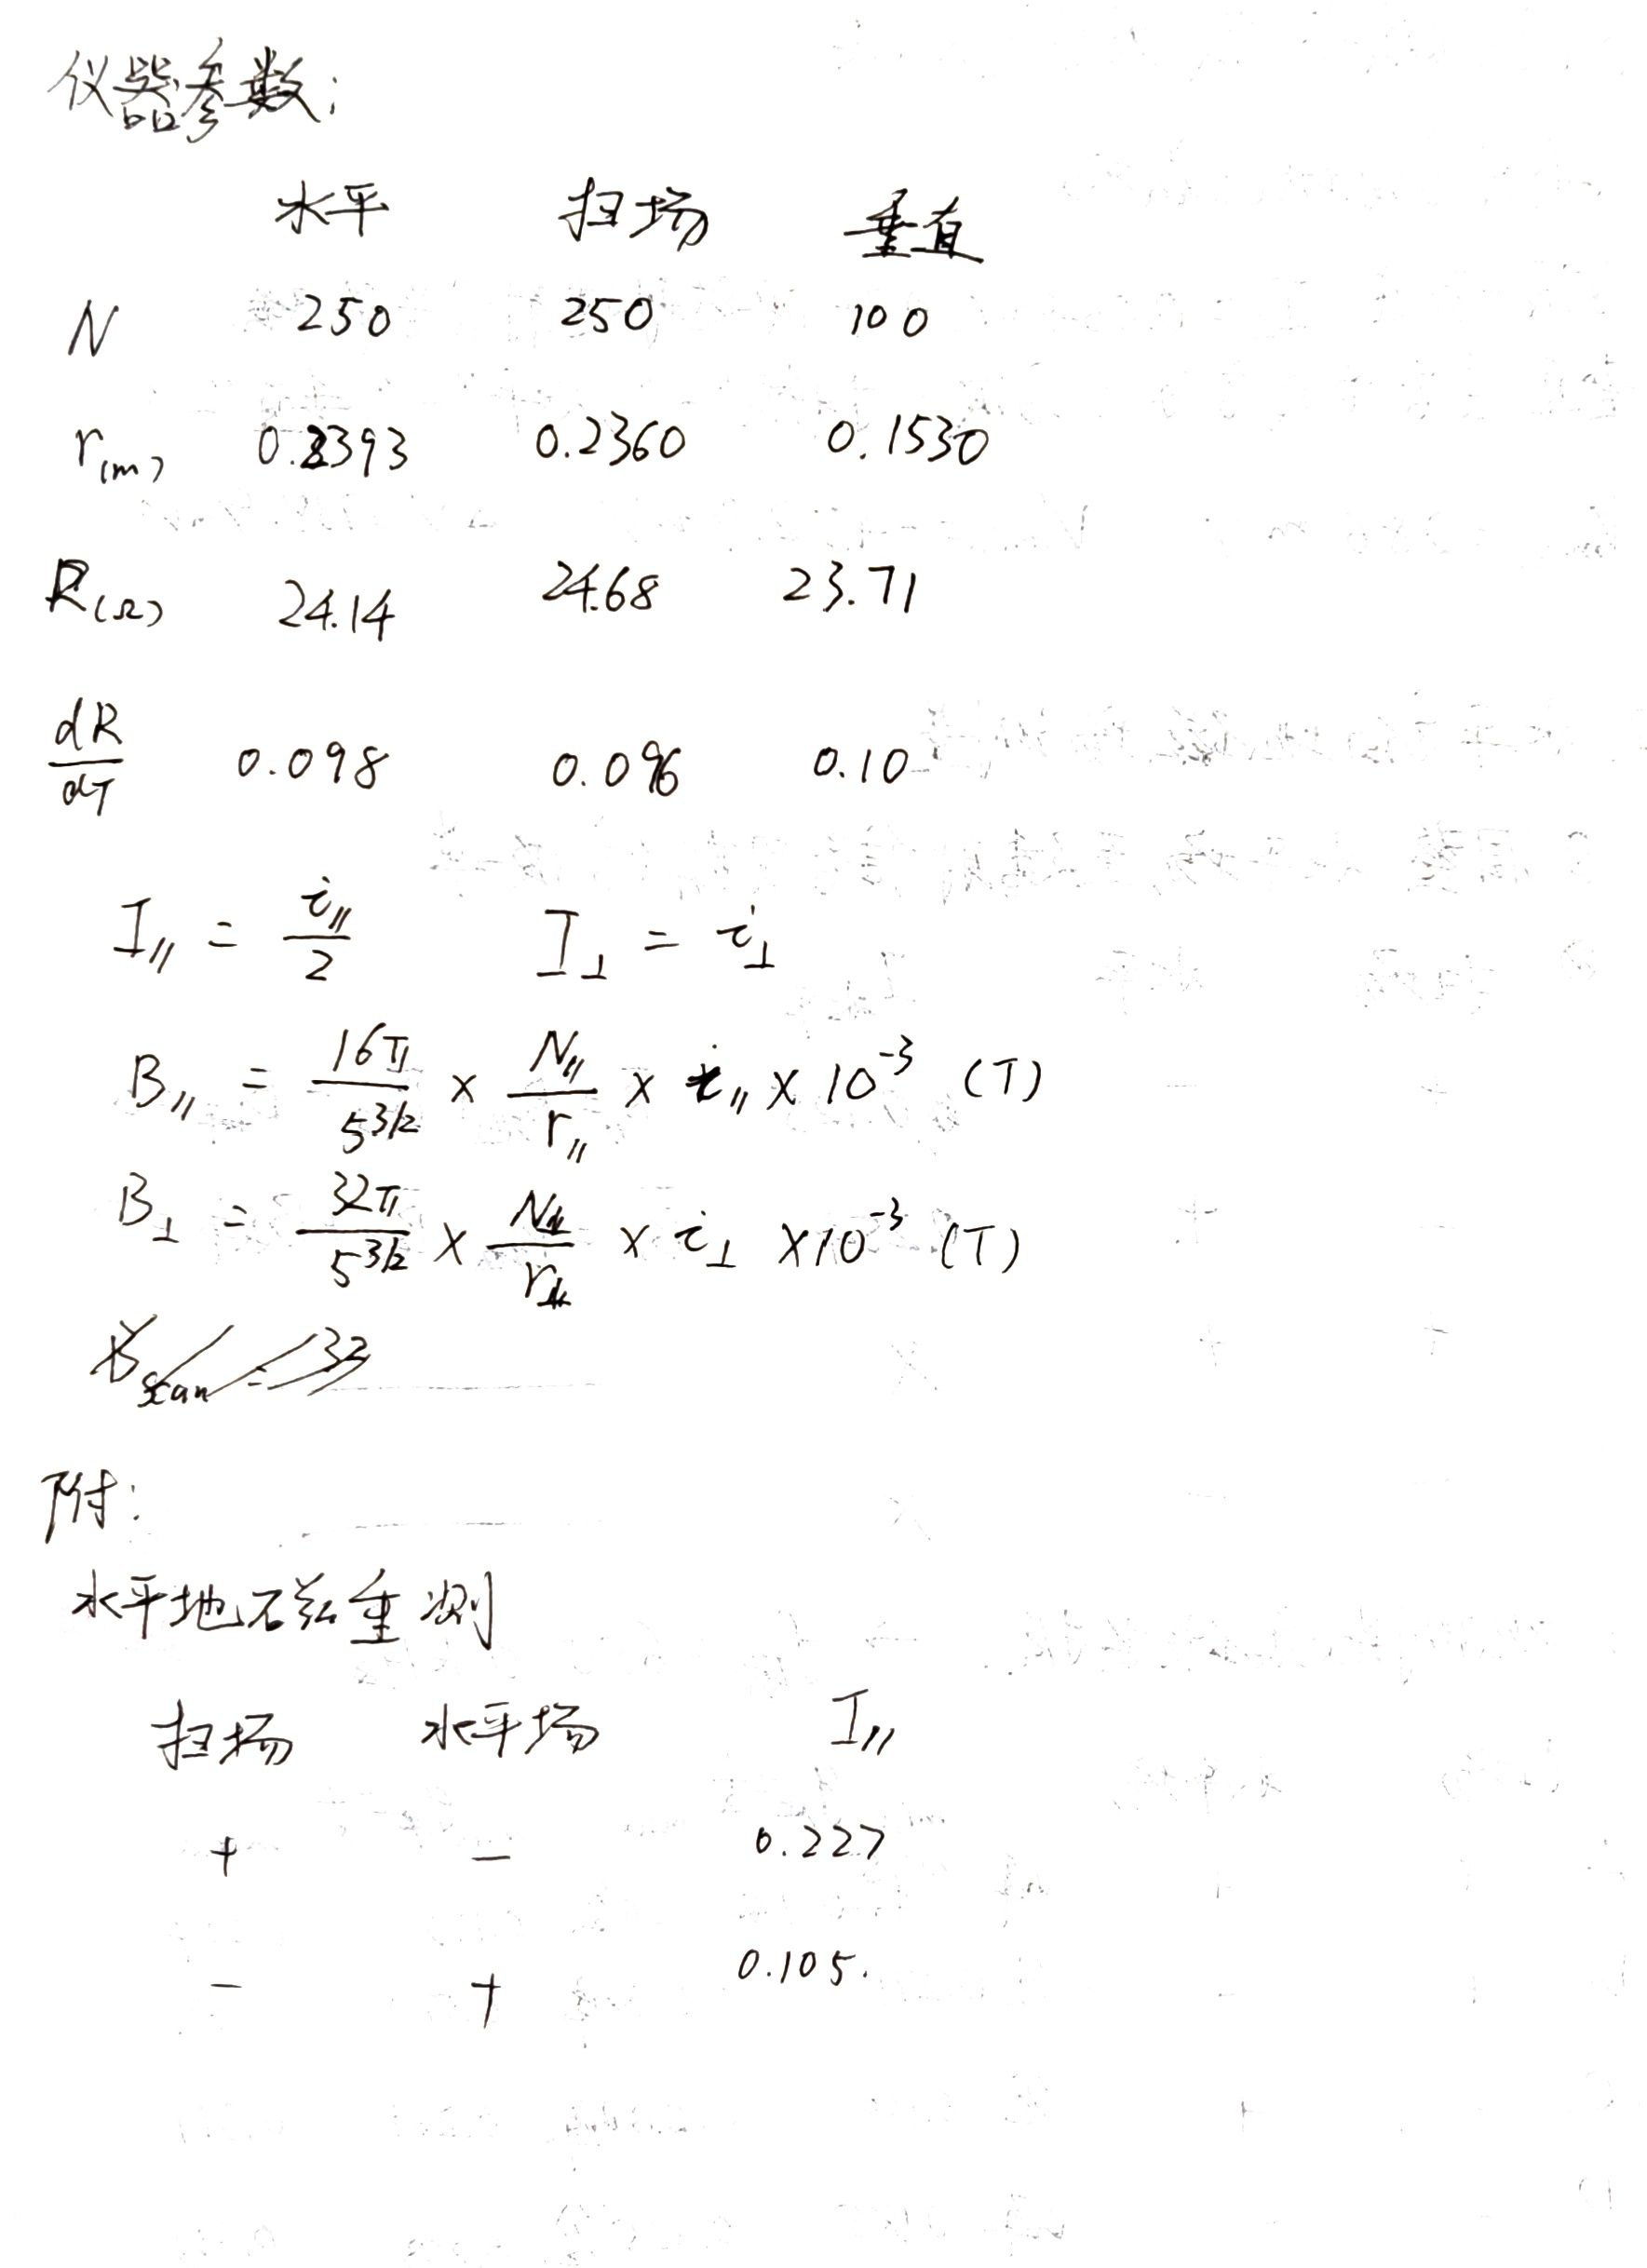 仪器参数:
水平 扫场 垂直
N 250 250 100
r(m) 0.2393 0.2360 0.1530
R(Ω) 24.14 24.68 23.71
dR/dT 0.098 0.096 0.10
I∥ = i∥/2 I⊥ = i⊥
B∥ = 16π/5^{3/2} × N∥/r∥ × i∥ × 10^{-3} (T)
B⊥ = 32π/5^{3/2} × N⊥/r⊥ × i⊥ ×10^{-3} (T)
附:
水平地磁重测
扫场 水平场 I∥
+ − 0.227
− + 0.105.